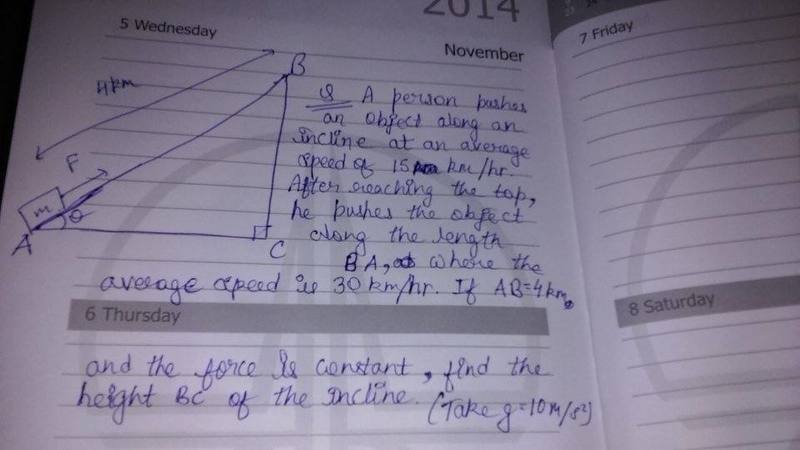 2014
5 Wednesday
November
7 Friday
4km
B
Q A person pushes
an object along an
incline at an average
speed of 15 km/hr.
After reaching the top,
he pushes the object
along the length
BA, where the
average speed is 30 km/hr. If AB=4km
F
m
θ
A
C
6 Thursday
8 Saturday
and the force is constant, find the
height BC of the incline. (Take g=10m/s²)